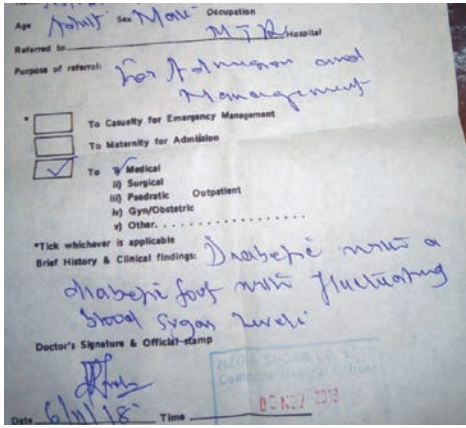 Age Adult Sex Male Occupation
Referred to M T R Hospital
Purpose of referral: For Admission and
Management
* To Casualty for Emergency Management
To Maternity for Admission
To i) Medical
ii) Surgical
iii) Paedratic Outpatient
iv) Gyn/Obstetric
v) Other. . . . . . . . . . . . . . . . .
*Tick whichever is applicable
Brief History & Clinical findings: Diabetic with a
diabetic foot with fluctuating
blood sugar levels
Doctor's Signature & Official stamp
NZOIA SUGAR
Medical Officer
Date 6/11/18 Time
NOV 2018